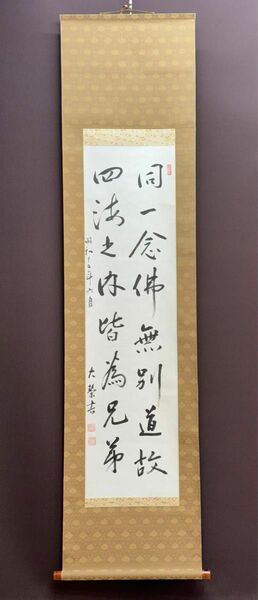 同一念佛無別道故
四海之内皆為兄弟
昭和十五年六月
大榮書